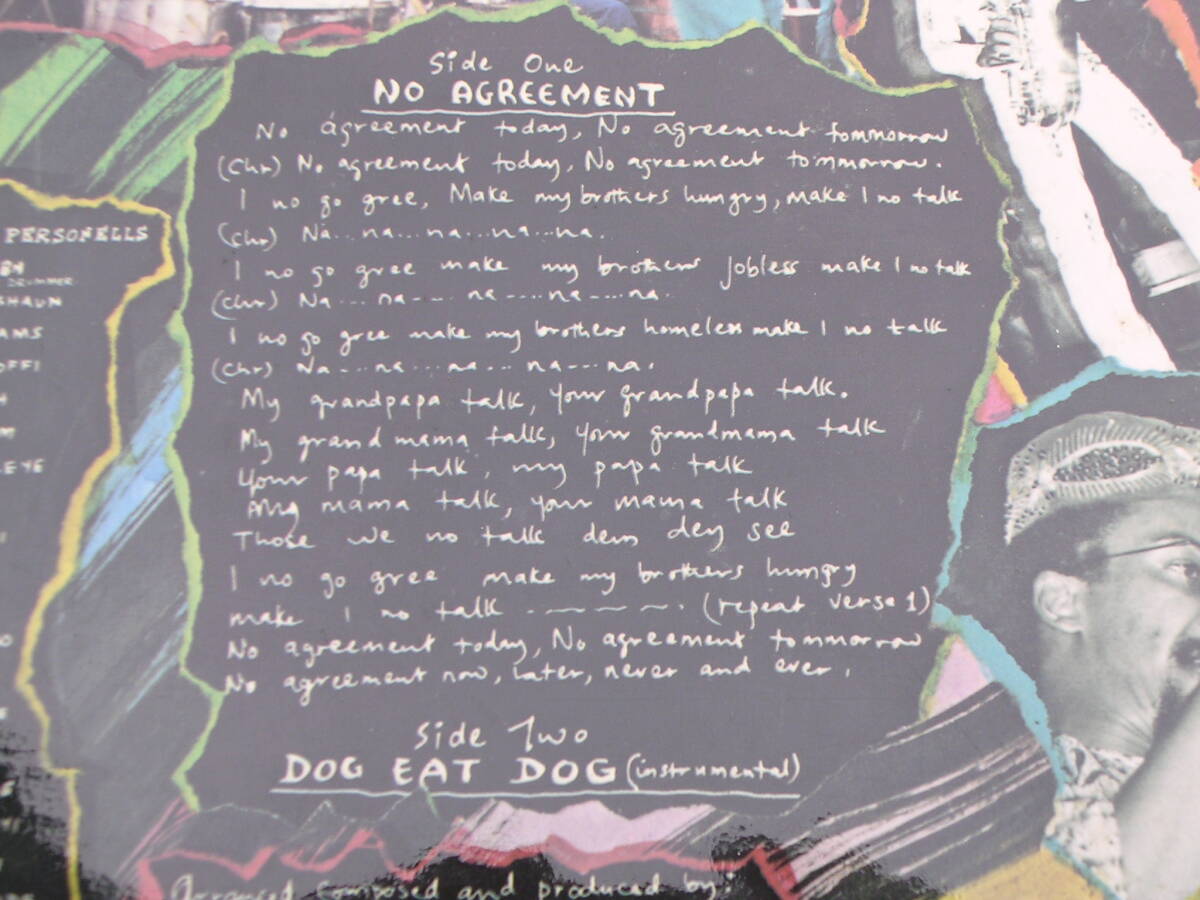 Side One
NO AGREEMENT
No agreement today, No agreement tommorrow
(Chr) No agreement today, No agreement tommorrow.
I no go gree, Make my brothers hungry, make I no talk
(Chr) Na... na... na... na... na.
I no go gree make my brothers Jobless make I no talk
(Chr) Na... na.... na.....na....na.
I no go gree make my brothers homeless make I no talk
(Chr) Na....na....na... na....na.
My grandpapa talk, your grandpapa talk.
My grandmama talk, your grandmama talk
Your papa talk, my papa talk
My mama talk, your mama talk
Those we no talk dem dey see
I no go gree make my brothers hungry
make I no talk - - - - - . (repeat verse 1)
No agreement today, No agreement tommorrow
No agreement now, later, never and ever.
Side Two
DOG EAT DOG (instrumental)
Arranged composed and produced by:
PERSONELLS
DRUMMER
SHAUN
AMS
OFFI
EYE